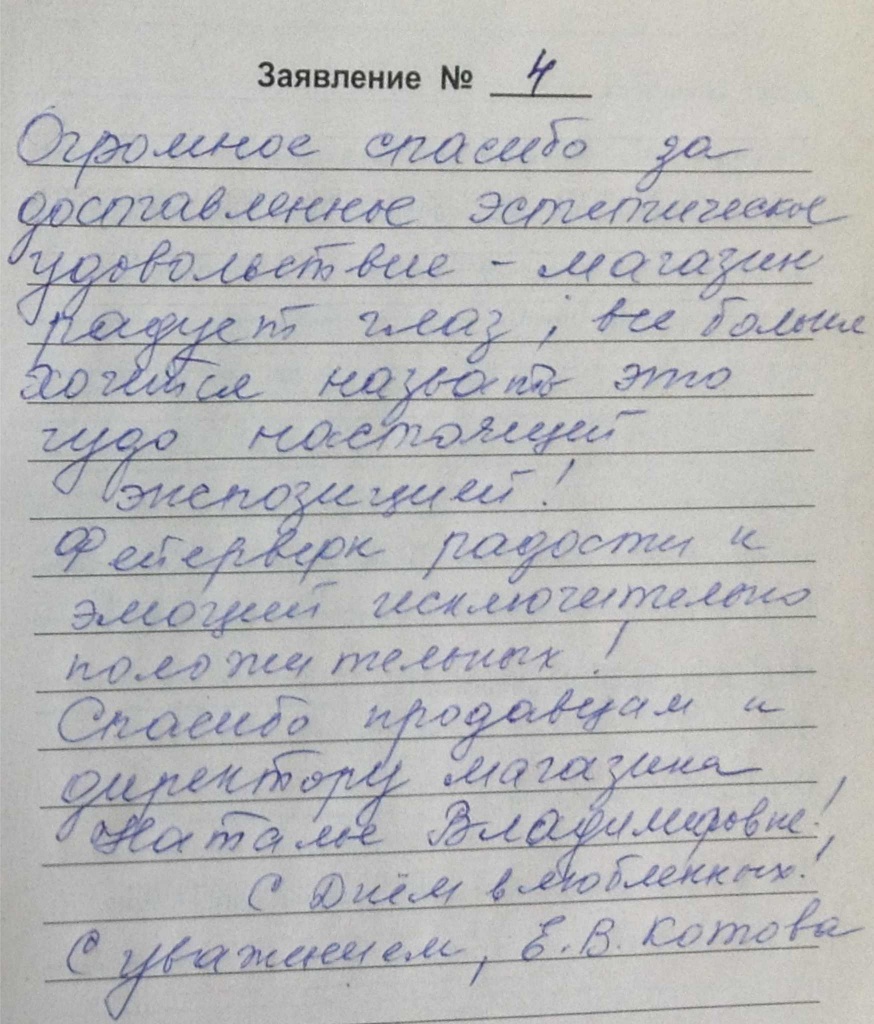 Заявление № 4
Огромное спасибо за
доставленное эстетическое
удовольствие - магазин
радует глаз; все больше
хочется назвать это
чудо настоящей
экспозицией!
Фейерверк радости и
эмоций исключительно
положительных!
Спасибо продавцам и
директору магазина
Наталье Владимировне!
С Днём влюбленных!
С уважением, Е.В. Котова